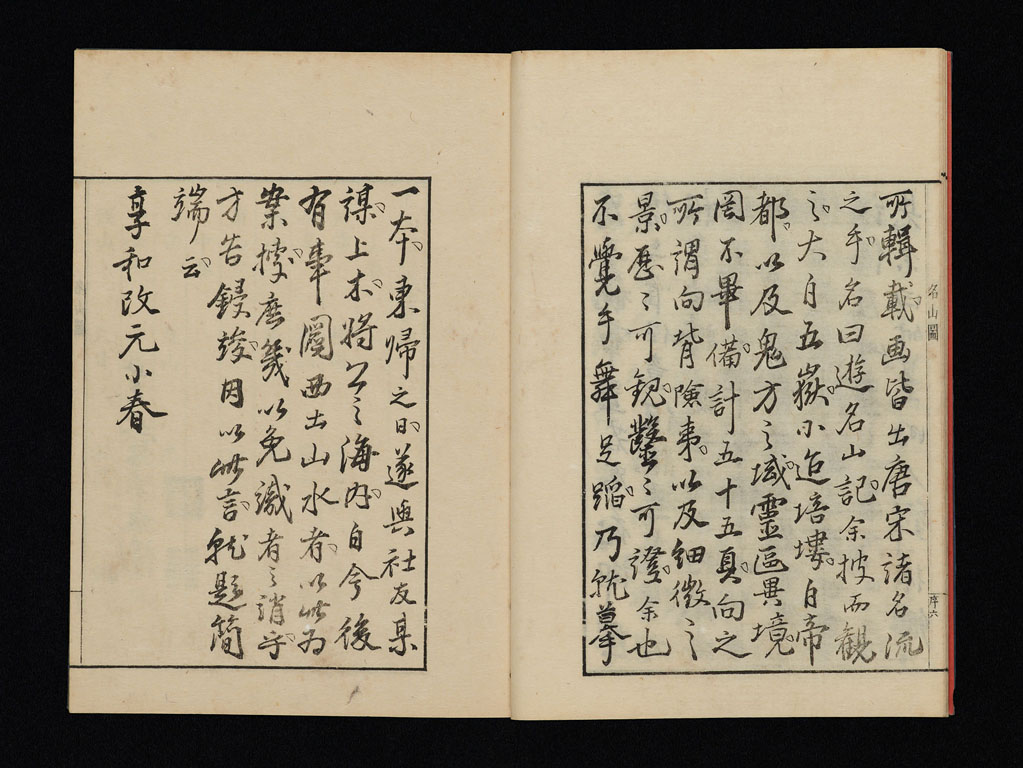 所輯載画皆出唐宋諸名流
之手名曰遊名山記余披而觀
之大自五嶽小迨培塿自帝
都以及鬼方之域靈區異境
罔不畢備計五十五頁向之
所謂向背險夷以及細微之
景歷〻可覩鑿〻可證余也
不覺手舞足蹈乃就摹
名山圖
序六
一本東歸之日遂與社友某
謀上木將公之海內自今後
有事圖西土山水者以此為
案據庶幾以免識者之誚乎
方告鋟竣因以此言就題簡
端云
享和改元小春